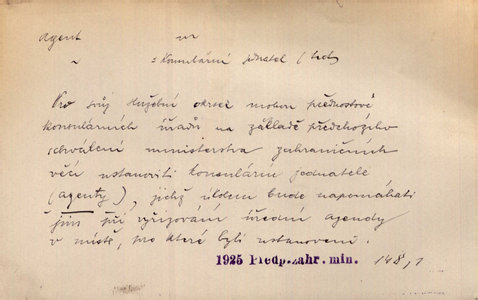 agent
konsulární jednatel
Pro svůj služební okrsek mohou přednostové
konsulárních úřadů na základě předchozího
schválení ministerstva zahraničních
věcí ustanoviti konsulární jednatele
(agenty), jichž úkolem bude napomáhati
jim při vyřizování úřední agendy
v místě, pro které byli ustanoveni.
1925 Předp. zahr. min. 148,1